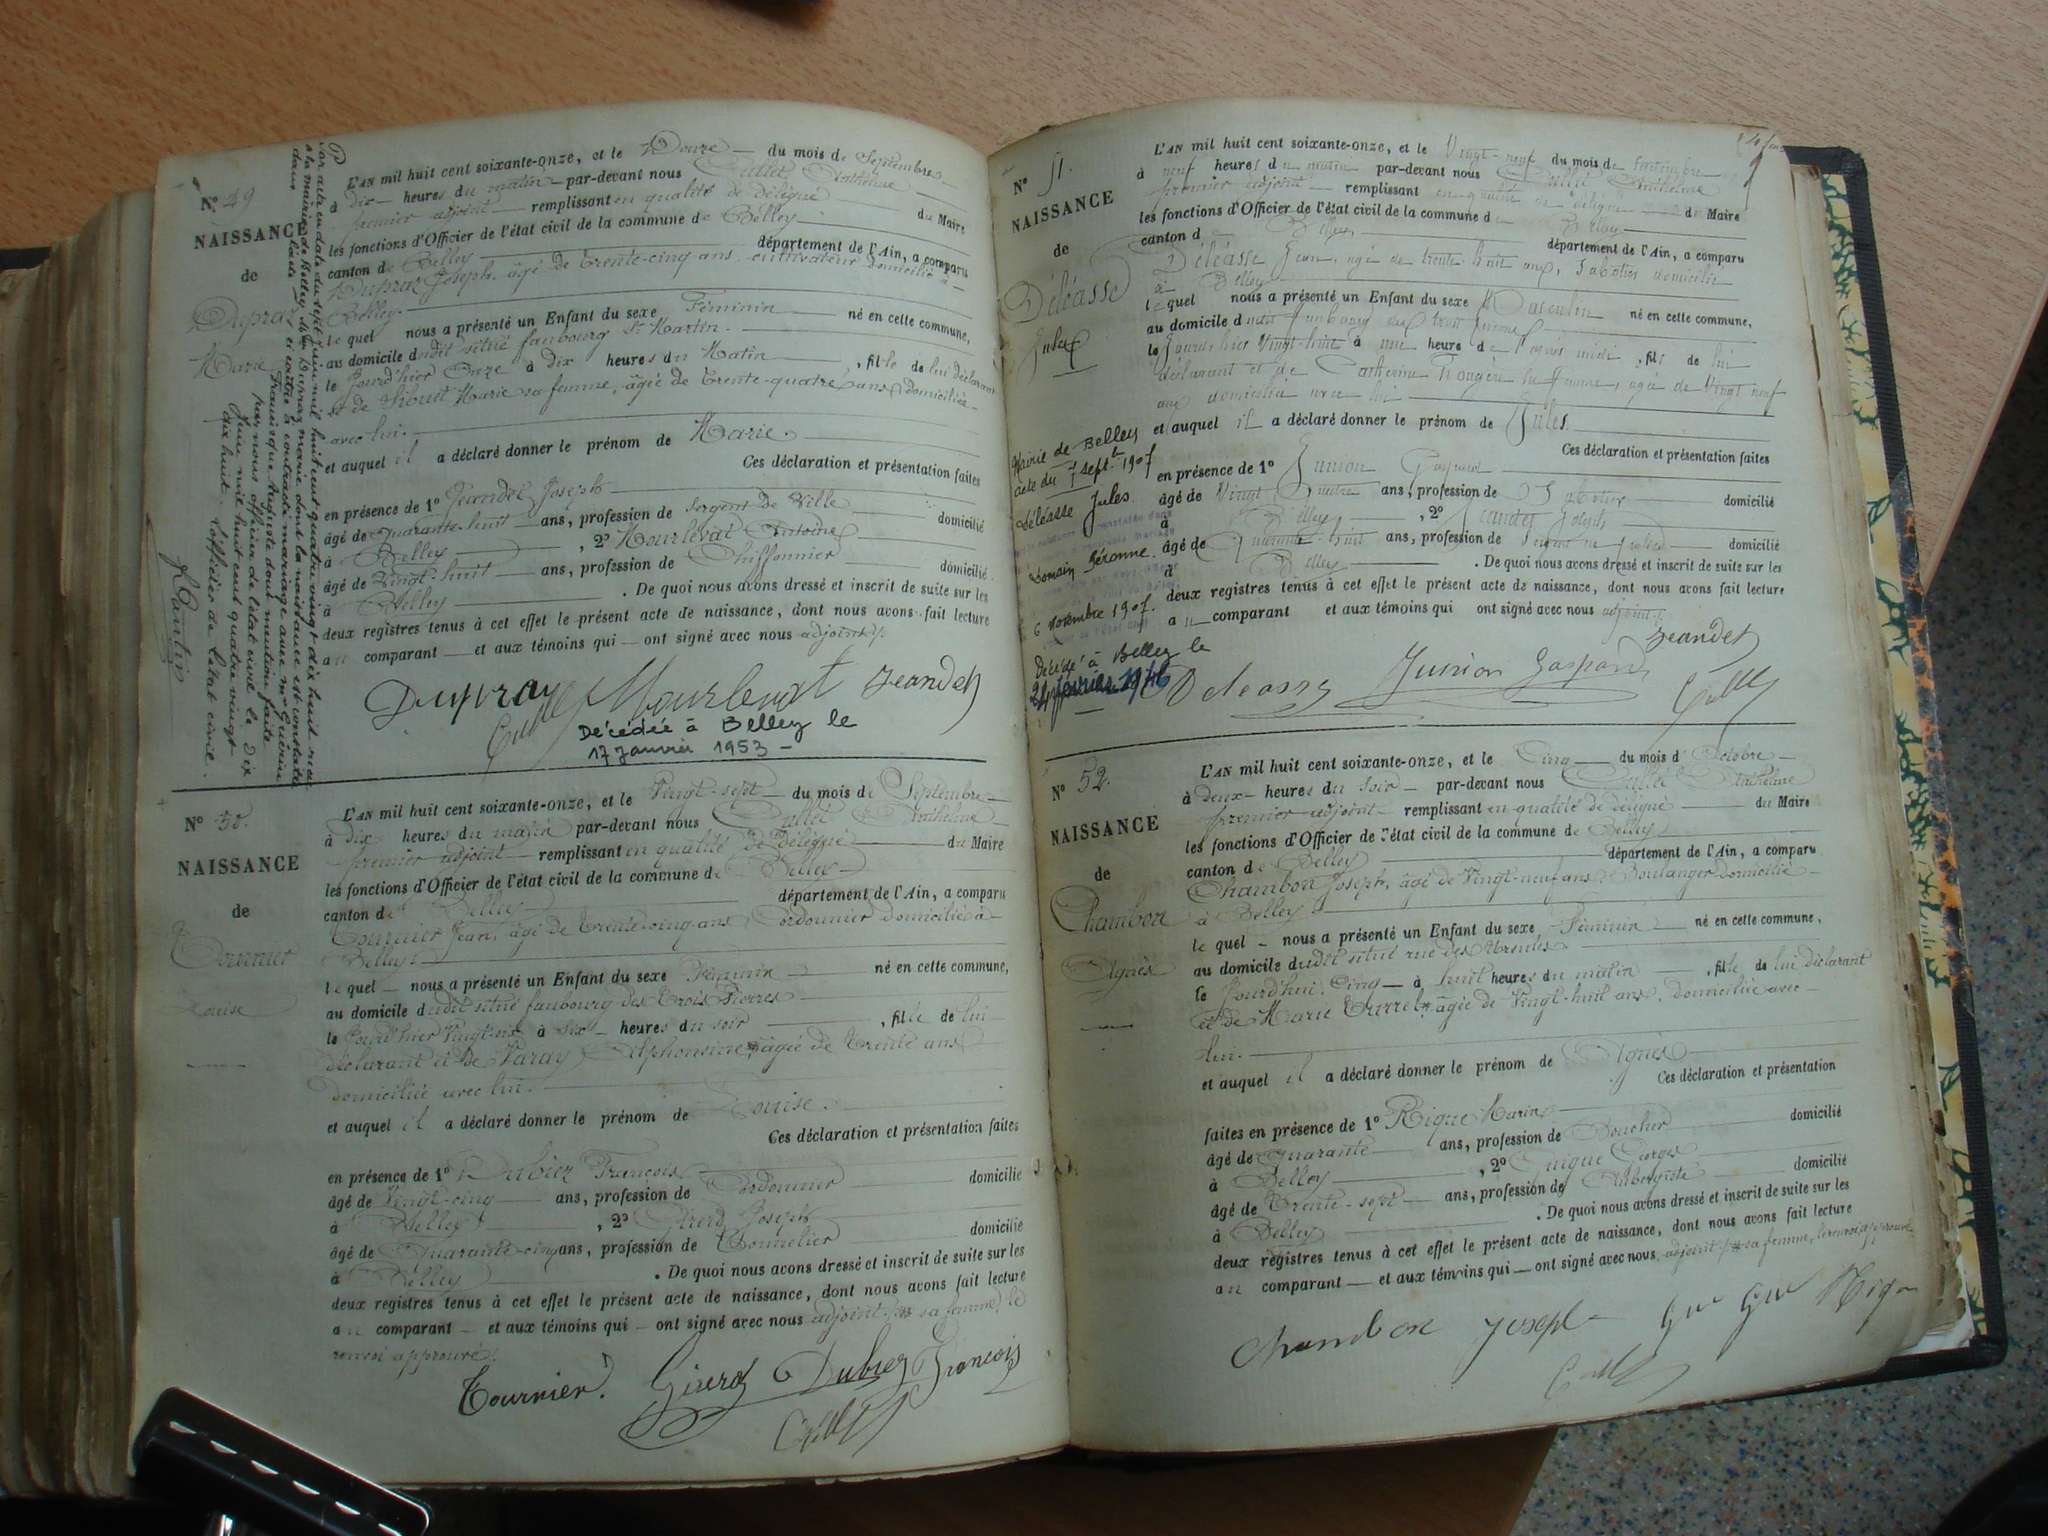 N° 49
NAISSANCE
de
Dupraz
Marie
L'AN mil huit cent soixante-onze, et le Douze du mois de Septembre
à dix heures du matin par-devant nous Cullet Anthelme
premier adjoint remplissant en qualité de délégué du Maire
les fonctions d'Officier de l'état civil de la commune de Belley
canton de Belley département de l'Ain, a comparu
Dupraz Joseph, âgé de trente-cinq ans, cultivateur domicilié à
Belley.
lequel nous a présenté un Enfant du sexe Féminin né en cette commune,
au domicile dudit situé faubourg St Martin.
le Jourd'hier Onze à dix heures du Matin, fille de lui déclarant
et de Sibuet Marie sa femme, âgée de trente-quatre ans, domiciliée
avec lui.
et auquel il a déclaré donner le prénom de Marie.
Ces déclaration et présentation faites
en présence de 1° Jeandet Joseph
âgé de Quarante-huit ans, profession de Sergent de Ville domicilié
à Belley, 2° Mourlevat Antoine
âgé de Vingt-huit ans, profession de Chiffonnier domicilié
à Belley. De quoi nous avons dressé et inscrit de suite sur les
deux registres tenus à cet effet le présent acte de naissance, dont nous avons fait lecture
au comparant et aux témoins qui ont signé avec nous adjoint.
Dupraz Mourlevat Jeandet
Cullet
Décédée à Belley le
17 Janvier 1953
Par acte en date du sept juin mil huit cent quatre vingt dix huit reçu
à la mairie de Belley, Melle Dupraz marie dont la naissance est constatée
dans l'acte ci contre a contracté mariage avec Mr Guérin
François Auguste dont mention faite
par nous officier de l'état civil le dix
Juin mil huit cent quatre vingt
dix huit. L'officier de l'état civil.
N° 50.
NAISSANCE
de
Tournier
Louise
L'AN mil huit cent soixante-onze, et le Vingt-sept du mois de Septembre
à dix heures du matin par-devant nous Cullet Anthelme
premier adjoint remplissant en qualité de Délégué du Maire
les fonctions d'Officier de l'état civil de la commune de Belley
canton de Belley département de l'Ain, a comparu
Tournier Jean, âgé de trente-cinq ans, Cordonnier domicilié à
Belley.
lequel nous a présenté un Enfant du sexe Féminin né en cette commune,
au domicile dudit situé faubourg des Trois Pierres
le Jourd'hier Vingt-six à six heures du soir, fille de lui
déclarant et de Varay Alphonsine, âgée de trente ans
domiciliée avec lui.
et auquel il a déclaré donner le prénom de Louise.
Ces déclaration et présentation faites
en présence de 1° Dubiez François
âgé de Vingt-cinq ans, profession de Cordonnier domicilié
à Belley, 2° Girerd Joseph
âgé de Quarante-cinq ans, profession de Tonnelier domicilié
à Belley. De quoi nous avons dressé et inscrit de suite sur les
deux registres tenus à cet effet le présent acte de naissance, dont nous avons fait lecture
au comparant et aux témoins qui ont signé avec nous adjoint. sa femme, le
renvoi approuvé.
Tournier Girerd Dubiez François
Cullet
N° 51.
NAISSANCE
de
Déléasse
Jules
L'AN mil huit cent soixante-onze, et le Vingt-neuf du mois de Septembre
à neuf heures du matin par-devant nous Cullet Anthelme
premier adjoint remplissant en qualité de délégué du Maire
les fonctions d'Officier de l'état civil de la commune de Belley
canton de Belley département de l'Ain, a comparu
Déléasse Jean, âgé de trente-huit ans, Sabotier domicilié
à Belley
lequel nous a présenté un Enfant du sexe Masculin né en cette commune,
au domicile dudit faubourg des trois pierres
le Jourd'hier Vingt-huit à une heure de l'après midi, fils de lui
déclarant et de Catherine Fougère sa femme, âgée de Vingt neuf
ans domiciliée avec lui
et auquel il a déclaré donner le prénom de Jules
Ces déclaration et présentation faites
en présence de 1° Junion Gaspard
âgé de Vingt-quatre ans, profession de Sabotier domicilié
à Belley, 2° Jeandet Joseph
âgé de Quarante-huit ans, profession de Sergent de police domicilié
à Belley. De quoi nous avons dressé et inscrit de suite sur les
deux registres tenus à cet effet le présent acte de naissance, dont nous avons fait lecture
au comparant et aux témoins qui ont signé avec nous adjoint.
Jeandet
Déléasse Junion Gaspard
Cullet
Mairie de Belley
acte du 7 septbre 1907
Déléasse Jules
6 novembre 1907.
Décédé à Belley le
24 février 1946
N° 52.
NAISSANCE
de
Chambon
Agnès
L'AN mil huit cent soixante-onze, et le Cinq du mois d'Octobre
à deux heures du soir par-devant nous Cullet Anthelme
premier adjoint remplissant en qualité de délégué du Maire
les fonctions d'Officier de l'état civil de la commune de Belley
canton de Belley département de l'Ain, a comparu
Chambon Joseph, âgé de Vingt-neuf ans, Boulanger domicilié
à Belley
lequel nous a présenté un Enfant du sexe Féminin né en cette commune,
au domicile dudit situé rue des Ursules
le Jourd'hui Cinq à huit heures du matin, fille de lui déclarant
et de Marie Curret, âgée de Vingt-huit ans, domiciliée avec
lui.
et auquel il a déclaré donner le prénom de Agnès
Ces déclaration et présentation
faites en présence de 1° Rigue Marin domicilié
âgé de Quarante ans, profession de Boucher
à Belley, 2° Guigue Georges
âgé de Trente-sept ans, profession de Aubergiste domicilié
à Belley. De quoi nous avons dressé et inscrit de suite sur les
deux régistres tenus à cet effet le présent acte de naissance, dont nous avons fait lecture
au comparant et aux témoins qui ont signé avec nous adjoint. sa femme, le renvoi approuvé
Chambon Joseph
Cullet